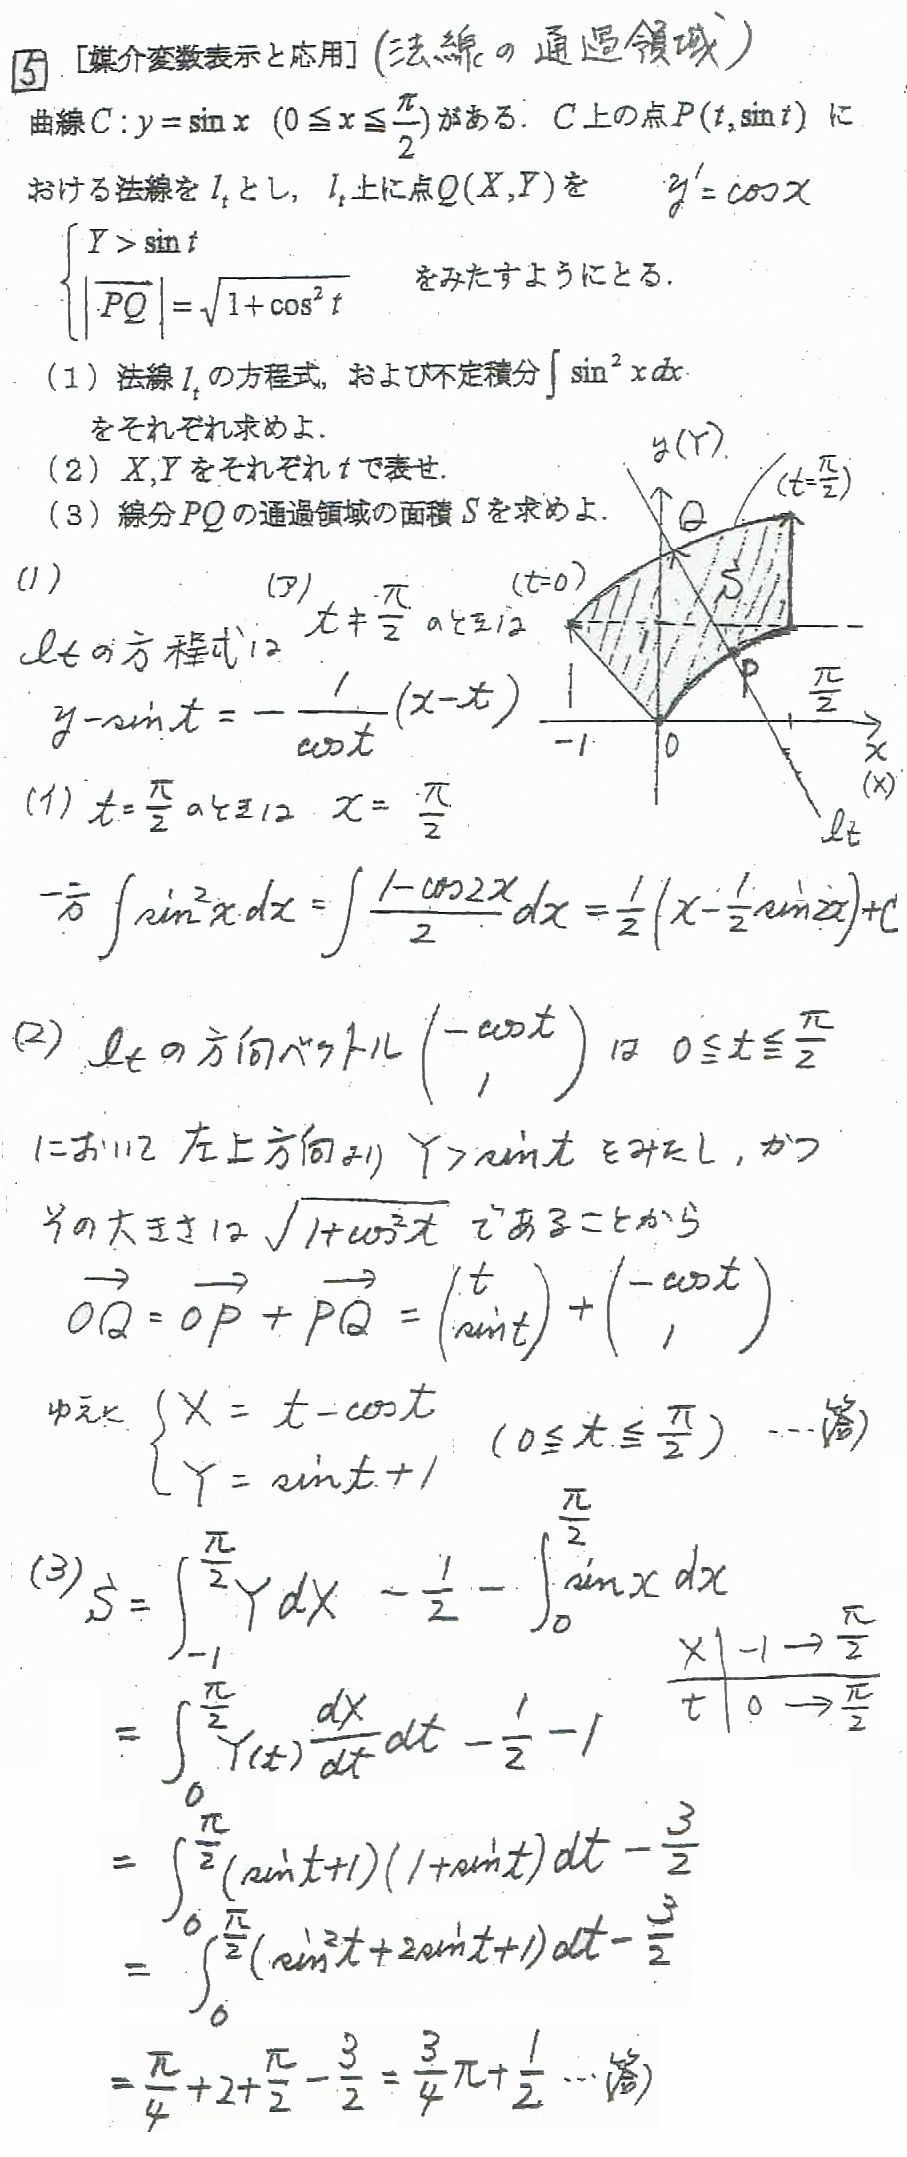 5 [媒介変数表示と応用] (法線の通過領域)
曲線 C : y = sin x (0 ≦ x ≦ π/2) がある. C 上の点 P(t, sin t) に
おける法線を l_t とし, l_t 上に点 Q(X, Y) を y' = cos x
{ Y > sin t
|PQ→| = √(1 + cos² t) をみたすようにとる.
(1) 法線 l_t の方程式, および不定積分 ∫ sin² x dx
をそれぞれ求めよ.
(2) X, Y をそれぞれ t で表せ.
(3) 線分 PQ の通過領域の面積 S を求めよ.
y(Y)
(t=π/2)
Q
(t=0)
S
1
P
π/2
-1
0
x
(X)
l_t
(1)
l_t の方程式は (ア) t ≠ π/2 のときは
y - sin t = - 1/cos t (x - t)
(イ) t = π/2 のときは x = π/2
一方 ∫ sin² x dx = ∫ (1 - cos 2x)/2 dx = 1/2 (x - 1/2 sin 2x) + C
(2) l_t の方向ベクトル (-cos t, 1) は 0 ≦ t ≦ π/2
において 左上方向より Y > sin t をみたし, かつ
その大きさは √(1 + cos² t) であることから
OQ→ = OP→ + PQ→ = (t, sin t) + (-cos t, 1)
ゆえに { X = t - cos t
Y = sin t + 1 (0 ≦ t ≦ π/2) …答)
(3) S = ∫_{-1}^{π/2} Y dX - 1/2 - ∫_0^{π/2} sin x dx
X | -1 → π/2
t | 0 → π/2
= ∫_0^{π/2} Y(t) dX/dt dt - 1/2 - 1
= ∫_0^{π/2} (sin t + 1)(1 + sin t) dt - 3/2
= ∫_0^{π/2} (sin² t + 2 sin t + 1) dt - 3/2
= π/4 + 2 + π/2 - 3/2 = 3/4 π + 1/2 …答)